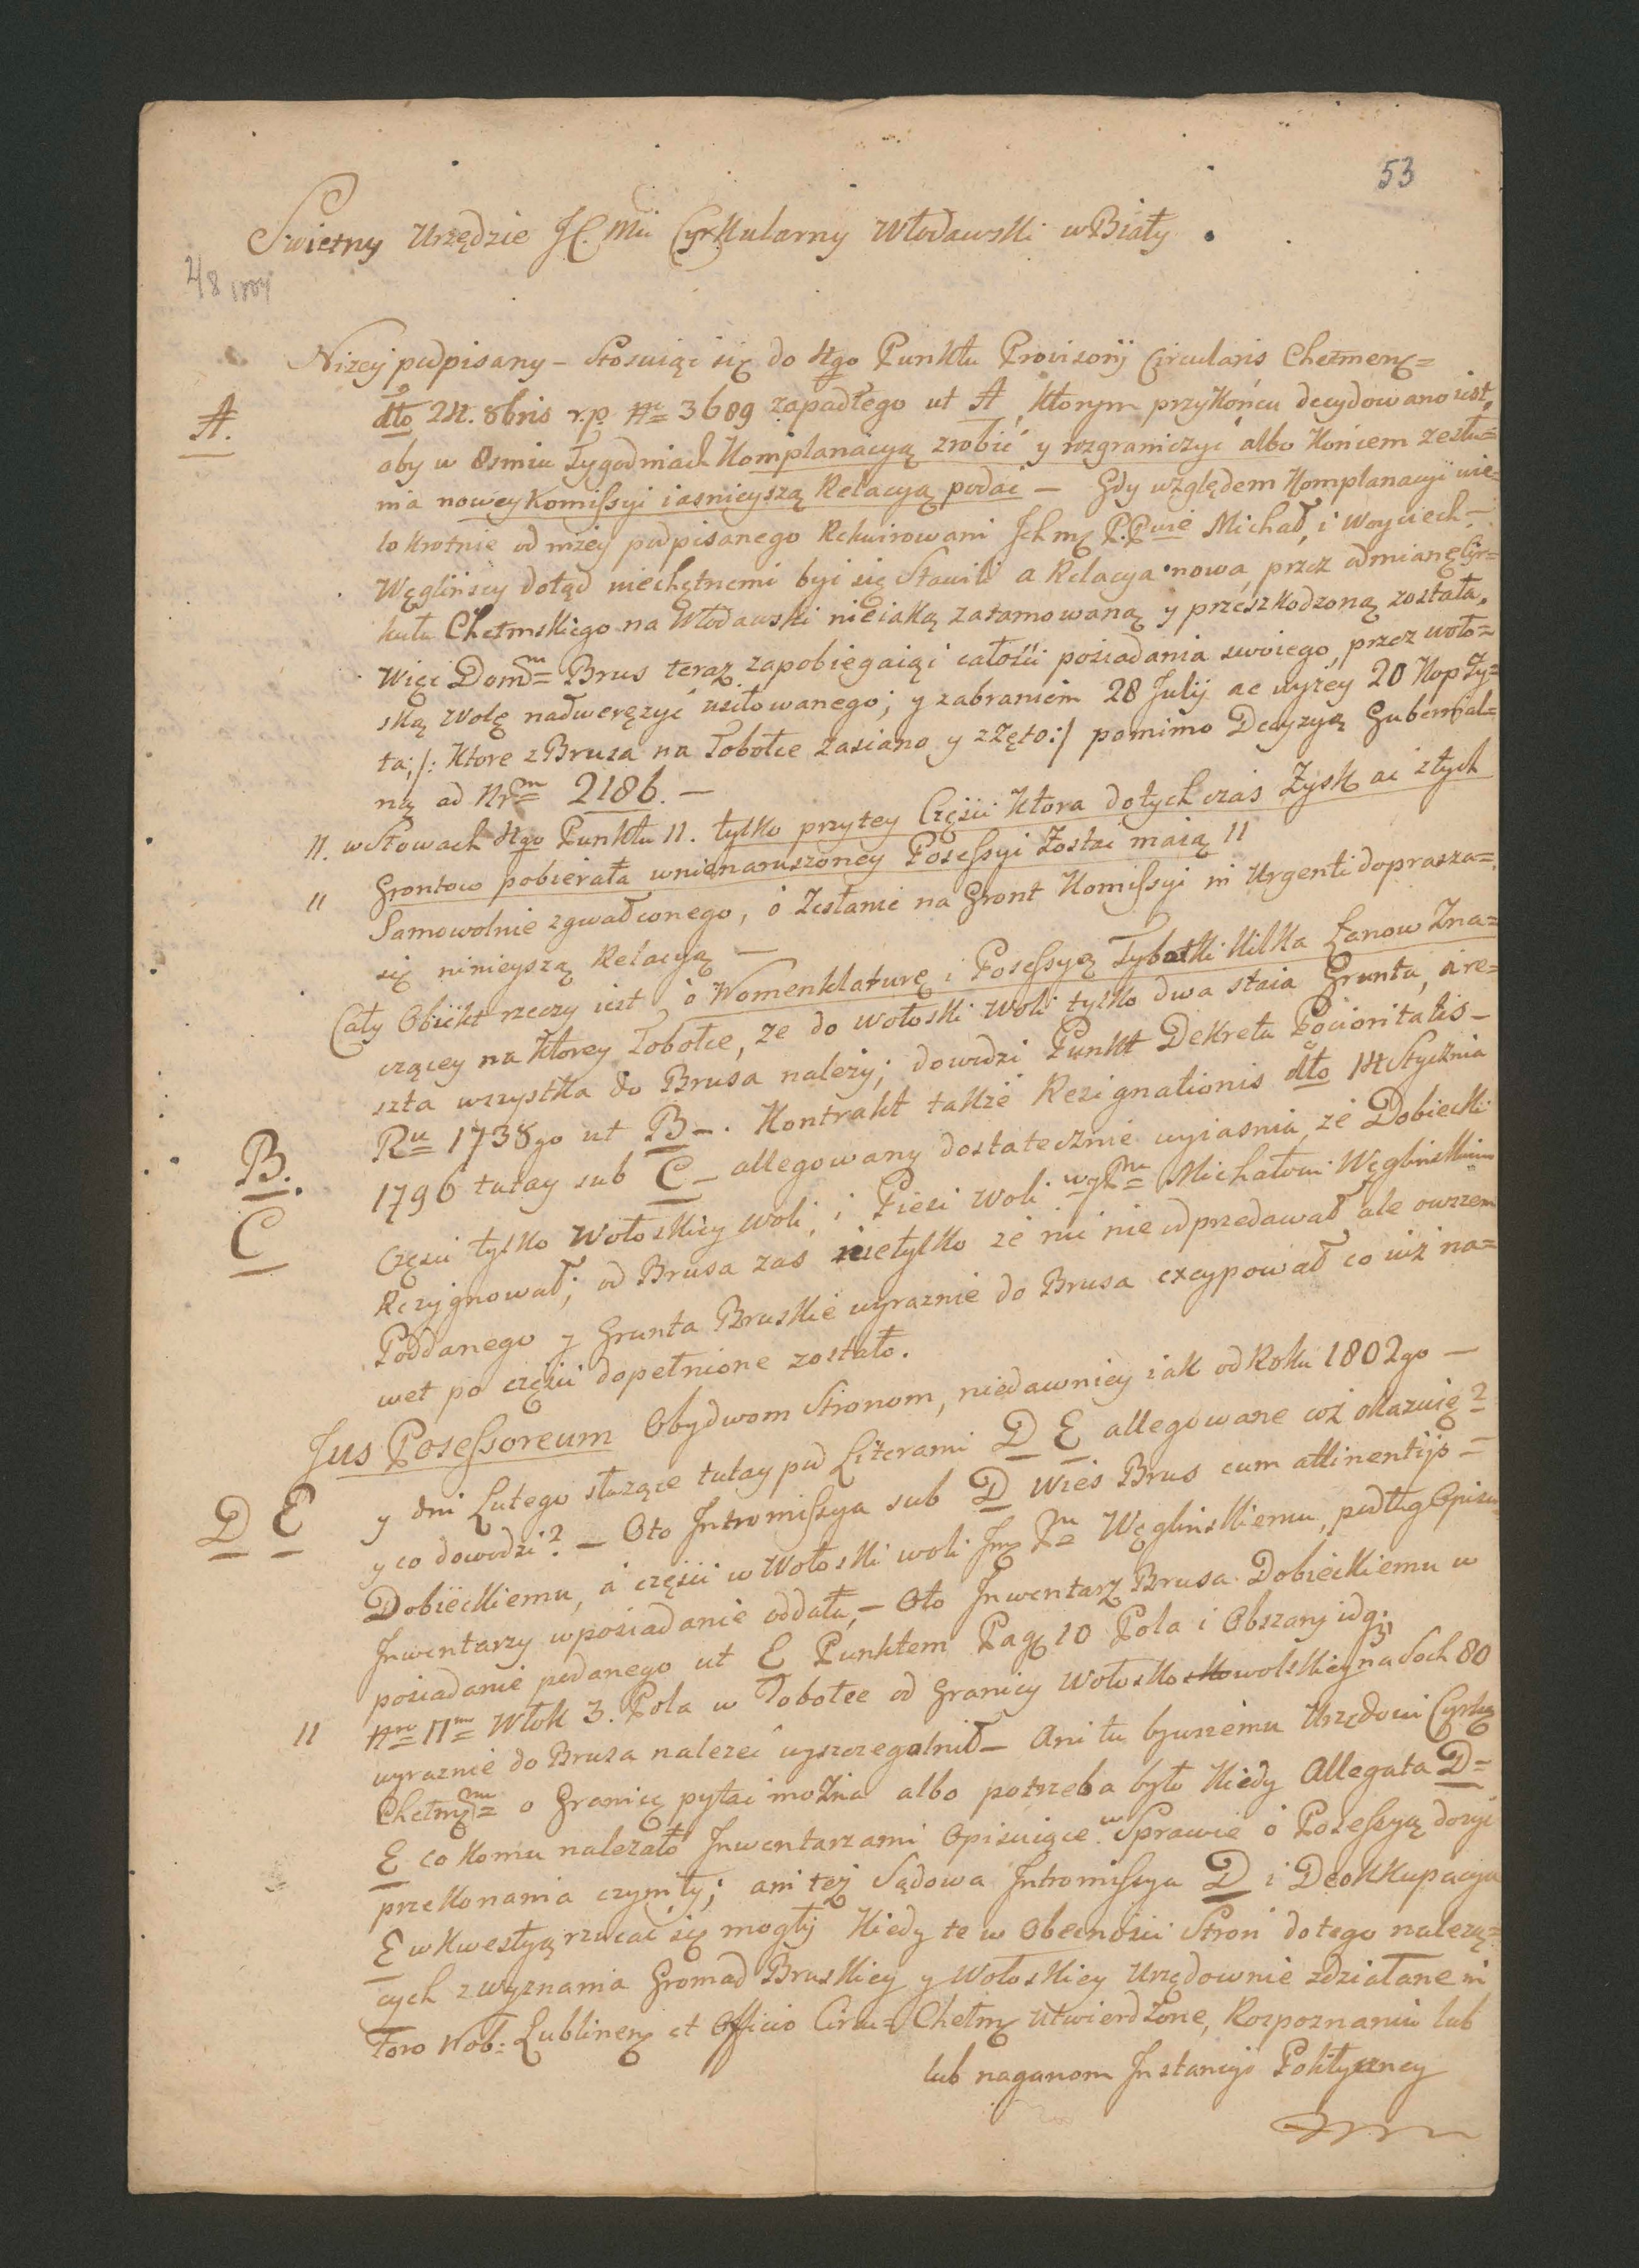 53
Swietny Urzędzie JC. Mci Cyrkularny Włodawski w Biały.
4/8 1804
Niżey podpisany – Stosuiąc się do 4go Punktu Provisorij Circularis Chełmens=
A.
dto 24. 8bris r.p. Nr 3689 zapadłego ut A, którym przykońcu decydowano iest,
aby w 8smiu Tygodniach Komplanacyą zrobić y rozgraniczyć albo końcem zesła=
nia nowey Komissyi iasnieyszą Relacyą podać – Gdy względem Komplanacyi wie=
lokrotnie od niżey podpisanego Rekwirowani Ichmę P.Pwie Michał, i Woyciech –
Węglińscy dotąd niechętnemi być się stawili a Relacya nowa, przez odmianę Cyr=
kułu Chełmskiego na Włodawski nieiaką zatamowaną y przeszkodzoną została.
Więc Domm Brus teraz zapobiegaiąc całości posiadania swoiego, przez woło=
ską wolę nadwerężyć usiłowanego; y zabraniem 28 Julij ac wyżey 20 Kop Ży=
ta; /: które z Brusa na Tobołce zasiano y zżęto :/ pomimo Decyzyą Gubernial=
ną ad Nrm 2186. –
11. w słowach 4go Punktu 11. tylko przytey Części która dotychczas Zyskac z tych
11 Grontow pobierała wnienaruszoney Posessyi Zostać maią 11
Samowolnie zgwałconego, o Zesłanie na Gront Komissyi in Urgenti doprasza=
się ninieyszą Relacyą –
Cały Obiekt rzeczy iest, o Nomenklaturę i Posessyę Tybołki kilka Łanow Zna=
czącey na którey Tobołce, że do wołoski woli tylko dwa staia Gruntu, a re=
szta wszystka do Brusa należy; dowodzi Punkt Dekretu Pocioritatis –
B.
Ru 1738go ut B –. Kontrakt także Rezignationis dto 14 Stycznia
C
1796 tutay sub C – allegowany dostatecznie wyiasnia, że Dobiecki
Części tylko Wołoskiey woli, i Pieci woli WJPnu Michałowi Węglinskiemu
Rezygnował; od Brusa zas nietylko że nic nie odprzedawał ale owszem
Poddanego y Grunta Bruskie wyraznie do Brusa excypował co iuż na=
wet po części dopełnione zostało.
Jus Posessoreum Obydwom Stronom, niedawniey iak od Roku 1802go –
D E
y dni Lutego służące tutay pod Literami D E allegowane coż okazuię?
y co dowodzi? – Oto Intromissya sub D Wieś Brus cum attinentijs =
Dobieckiemu, a części w Wołoski woli Jmę Pnu Węglinskiemu, podług Opisu
Inwentarzy w posiadanie oddała, – Oto Inwentarz Brusa Dobieckiemu w
posiadanie podanego ut E Punktem Pag 10 Pola i Obszary idą;
11 Nro 11mo Włok 3. Pola w Tobołce od Granicy Wołoskowolskiey na Soch 80
wyraznie do Brusa należeć wyszczególnił – Ani tu bywszemu Urzędowi Cyrkę
Chełmęmu o Granicę pytać można albo potrzeba było kiedy Allegata D =
E co komu należało Inwentarzami Opisuiące w Sprawie o Posessyą dosyć
przekonania czyniły; ani też Sądowa Intromissya D i Deokkupacya
E w kwestyą rzucać się mogły kiedy te w Obecności Stron do tego należą=
cych z wyznania Gromad Bruskiey y Wołoskiey Urzędownie zdziałane in
Foro Nob: Lublinenę et Officio Circu= Chełmę utwierdzone, Rozpoznaniu lub
lub naganom Instancyi Polityczney